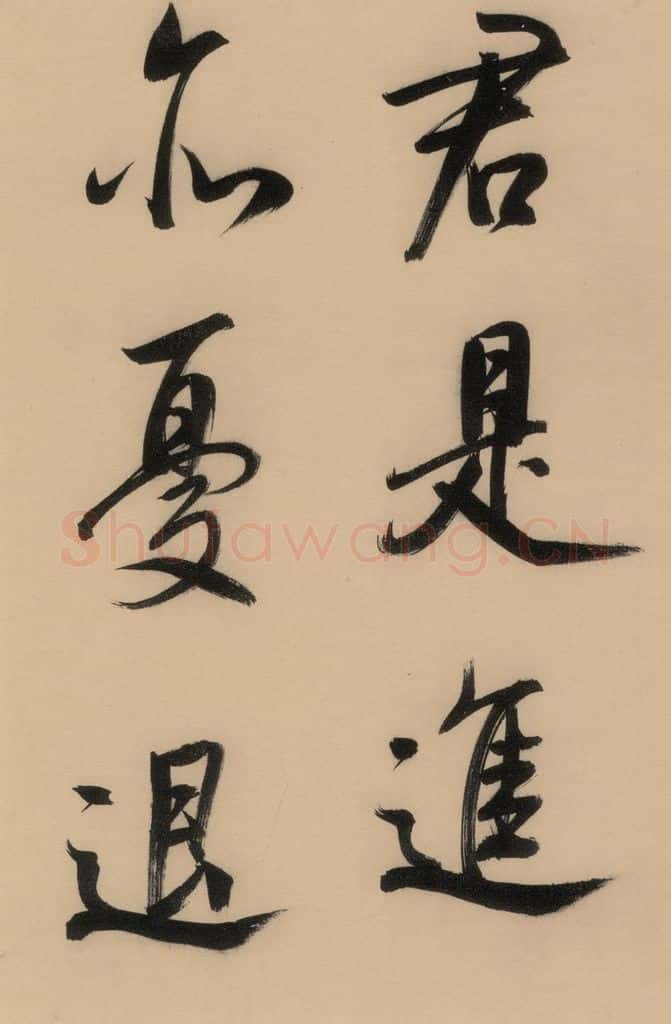 君是進
亦憂退
Shufawang.CN